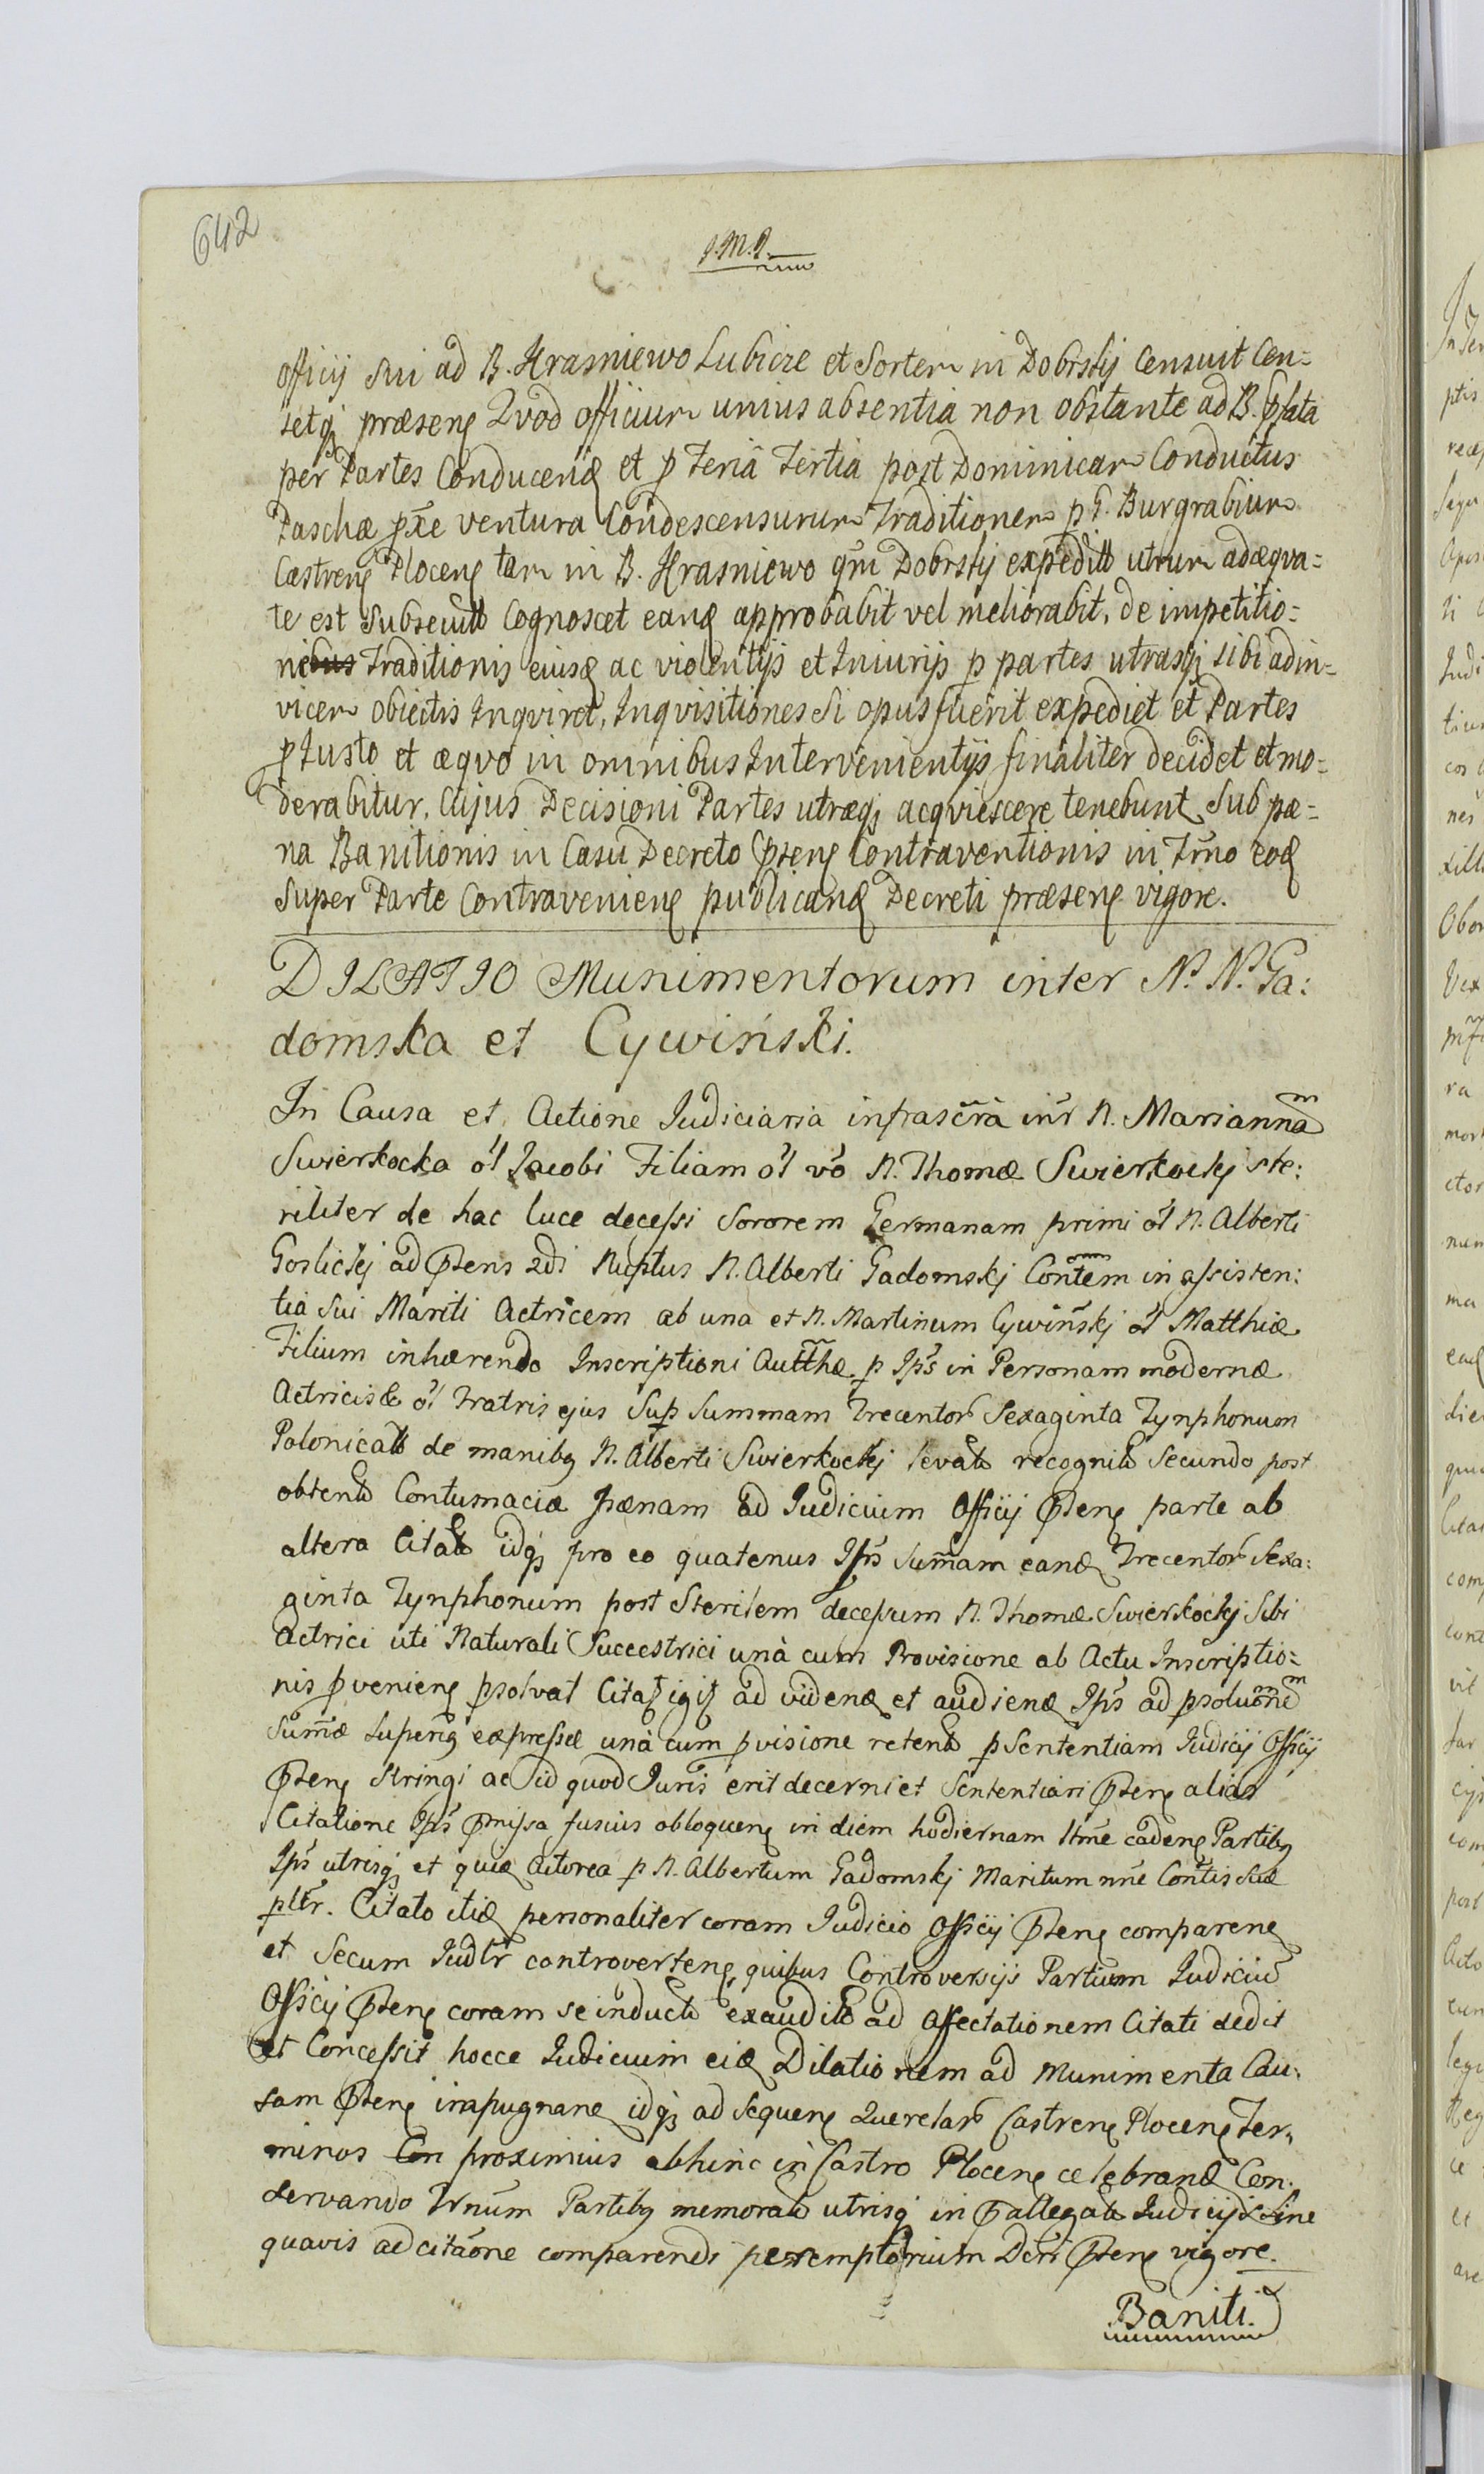 642
J.M.J.
officij sui ad B. Krasniewo Lubicze et Sortem in Dobrskij Censuit Cen=
setqz præseng Qvod officium unius absentia non obstante ad B. pfata
per Partes Conducend et p Feria Tertia post Dominicam Conductus
Paschæ pxe ventura Condescensurum Traditionem p G. Burgrabium
Castreng Ploceng tam in B. Krasniewo qm Dobrskij expedit utrum adæqva=
te est Subsecut Cognoscet eand approbabit vel meliorabit, de impetitio=
nibus Traditionis eiusd ac violentijs et Iniurijs p partes utrasqz sibi adin=
vicem obiectis Inqviret, Inqvisitiones Si opus fuerit expediet et Partes
p Iusto et æqvo in omnibus Intervenientijs finaliter decidet et mo=
derabitur, Cujus Decisioni Partes utræqz acqviescere tenebunt Sub pæ=
na Banitionis in Casu Decreto Pteng Contraventionis in Trno eod
Super Parte Contravenieng publicand Decreti præseng vigore.
DILATIO Munimentorum inter N. N. Ga:
domska et Cywiński.
In Causa et Actione Judiciaria infrascra intr N. Mariannam
Swierkocka ol Jacobi Filiam ol vo N. Thomæ Swierkockij ste:
riliter de hac luce decessi Sororem Germanam primi ol N. Alberti
Goslickij ad Ptens 2di Nuptus N. Alberti Gadomskj Contem in assisten:
tia sui Mariti Actricem ab una et N. Martinum Cywińskj ol Matthiæ
Filium inhærendo Inscriptioni Autthæ p Ips in Personam modernæ
Actricis & ol Fratris ejus Sup Summam Trecentor Sexaginta Tynphonum
Polonical de manibz N. Alberti Swierkockij levat recognit Secundo post
obtent Contumaciæ pænam ad Judicium Officij Pteng parte ab
altera Citat idqz pro eo quatenus Ips Summam eand Trecentor Sexa:
ginta Tynphonum post Sterilem decessum N. Thomæ Swierkockij Sibi
Actrici uti Naturali Succestrici unà cum Provisione ab Actu Inscriptio=
nis pvenieng psolvat Citat igit ad vidend et audiend Ips ad psoluonem
Summæ superiq expressæ unà cum pvisione retent p Sententiam Judicij Officij
Pteng Stringi ac Jid quod Juris erit decerni et Sententiari Pteng alias
Citatione Ips Pmissa fusius obloqueng in diem hodiernam ltme cadeng Partibz
Ips utrisqz et quid Actorea p N. Albertum Gadomskj Maritum nne Contis suæ
pltr. Citato itid personaliter coram Judicio Officij Pteng compareng
et Secum Judlr controverteng, quibus Controversijs Partium Judiciu
Officij Pteng coram se induct exaudit ad Affectationem Citati dedit
et Concessit hocce Judicium eid Dilationem ad Munimenta Cau:
sam Pteng impugnand idqz ad Sequeng Querelar Castreng Ploceng Ter:
minos proximius abhinc in Castro Ploceng celebrand Con:
servando Trnum Partibz memorat utrisqz in Pallegat Judicijs Sine
quavis adcitaone comparendi peremptorium Dcrti Pteng vigore.
Baniti.